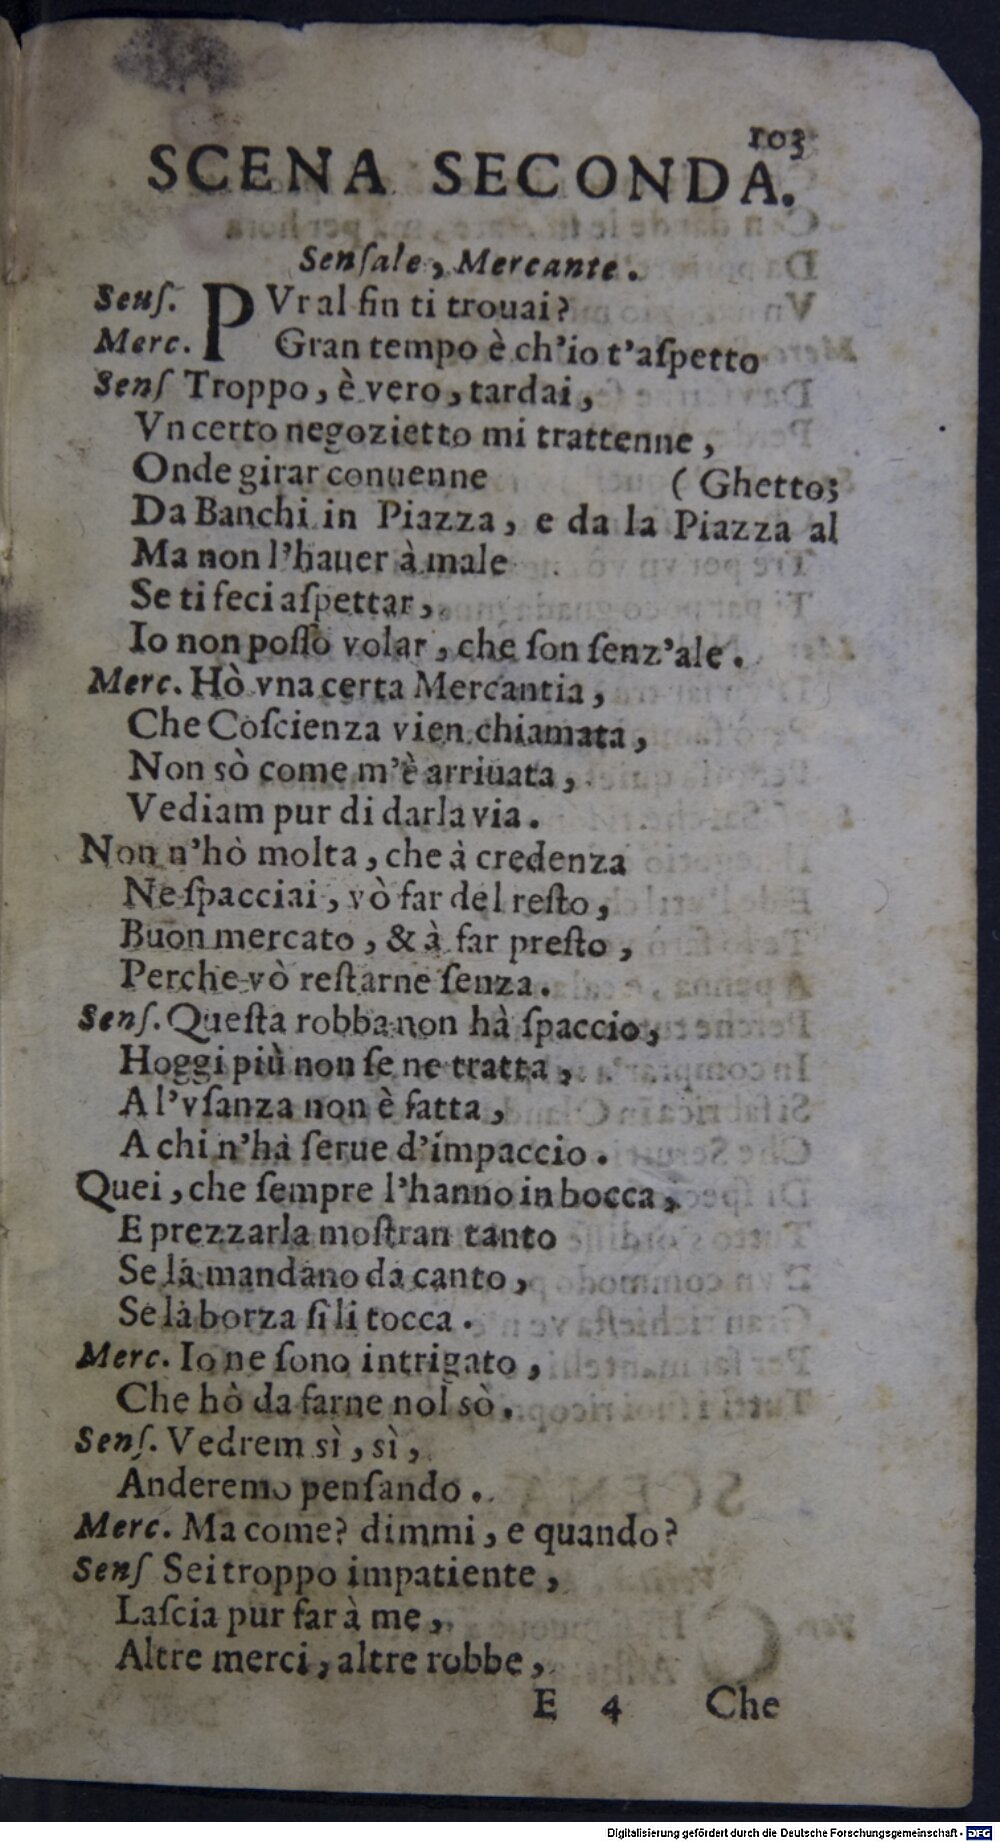 103
SCENA SECONDA.
Senſale, Mercante.
Sens. PVr al fin ti trouai?
Merc. Gran tempo è ch'io t'aſpetto
Senſ Troppo, è vero, tardai,
Vn certo negozietto mi trattenne,
Onde girar conuenne ( Ghetto;
Da Banchi in Piazza, e da la Piazza al
Ma non l'hauer à male
Se ti feci aſpettar,
Io non poſſo volar, che ſon ſenz'ale.
Merc. Hò vna certa Mercantia,
Che Coſcienza vien chiamata,
Non sò come m'è arriuata,
Vediam pur di darla via.
Non n'hò molta, che à credenza
Ne ſpacciai, vò far del reſto,
Buon mercato, & à far preſto,
Perche vò reſtarne ſenza.
Senſ. Queſta robba non hà ſpaccio,
Hoggi più non ſe ne tratta,
A l'vſanza non è fatta,
A chi n'hà ſerue d'impaccio.
Quei, che ſempre l'hanno in bocca,
E prezzarla moſtran tanto
Se la mandano da canto,
Se la borza ſi li tocca.
Merc. Io ne ſono intrigato,
Che hò da farne nol sò.
Senſ. Vedrem sì, sì,
Anderemo penſando.
Merc. Ma come? dimmi, e quando?
Senſ Sei troppo impatiente,
Laſcia pur far à me,
Altre merci, altre robbe,
E 4 Che
Digitalisierung gefördert durch die Deutsche Forschungsgemeinschaft - DFG